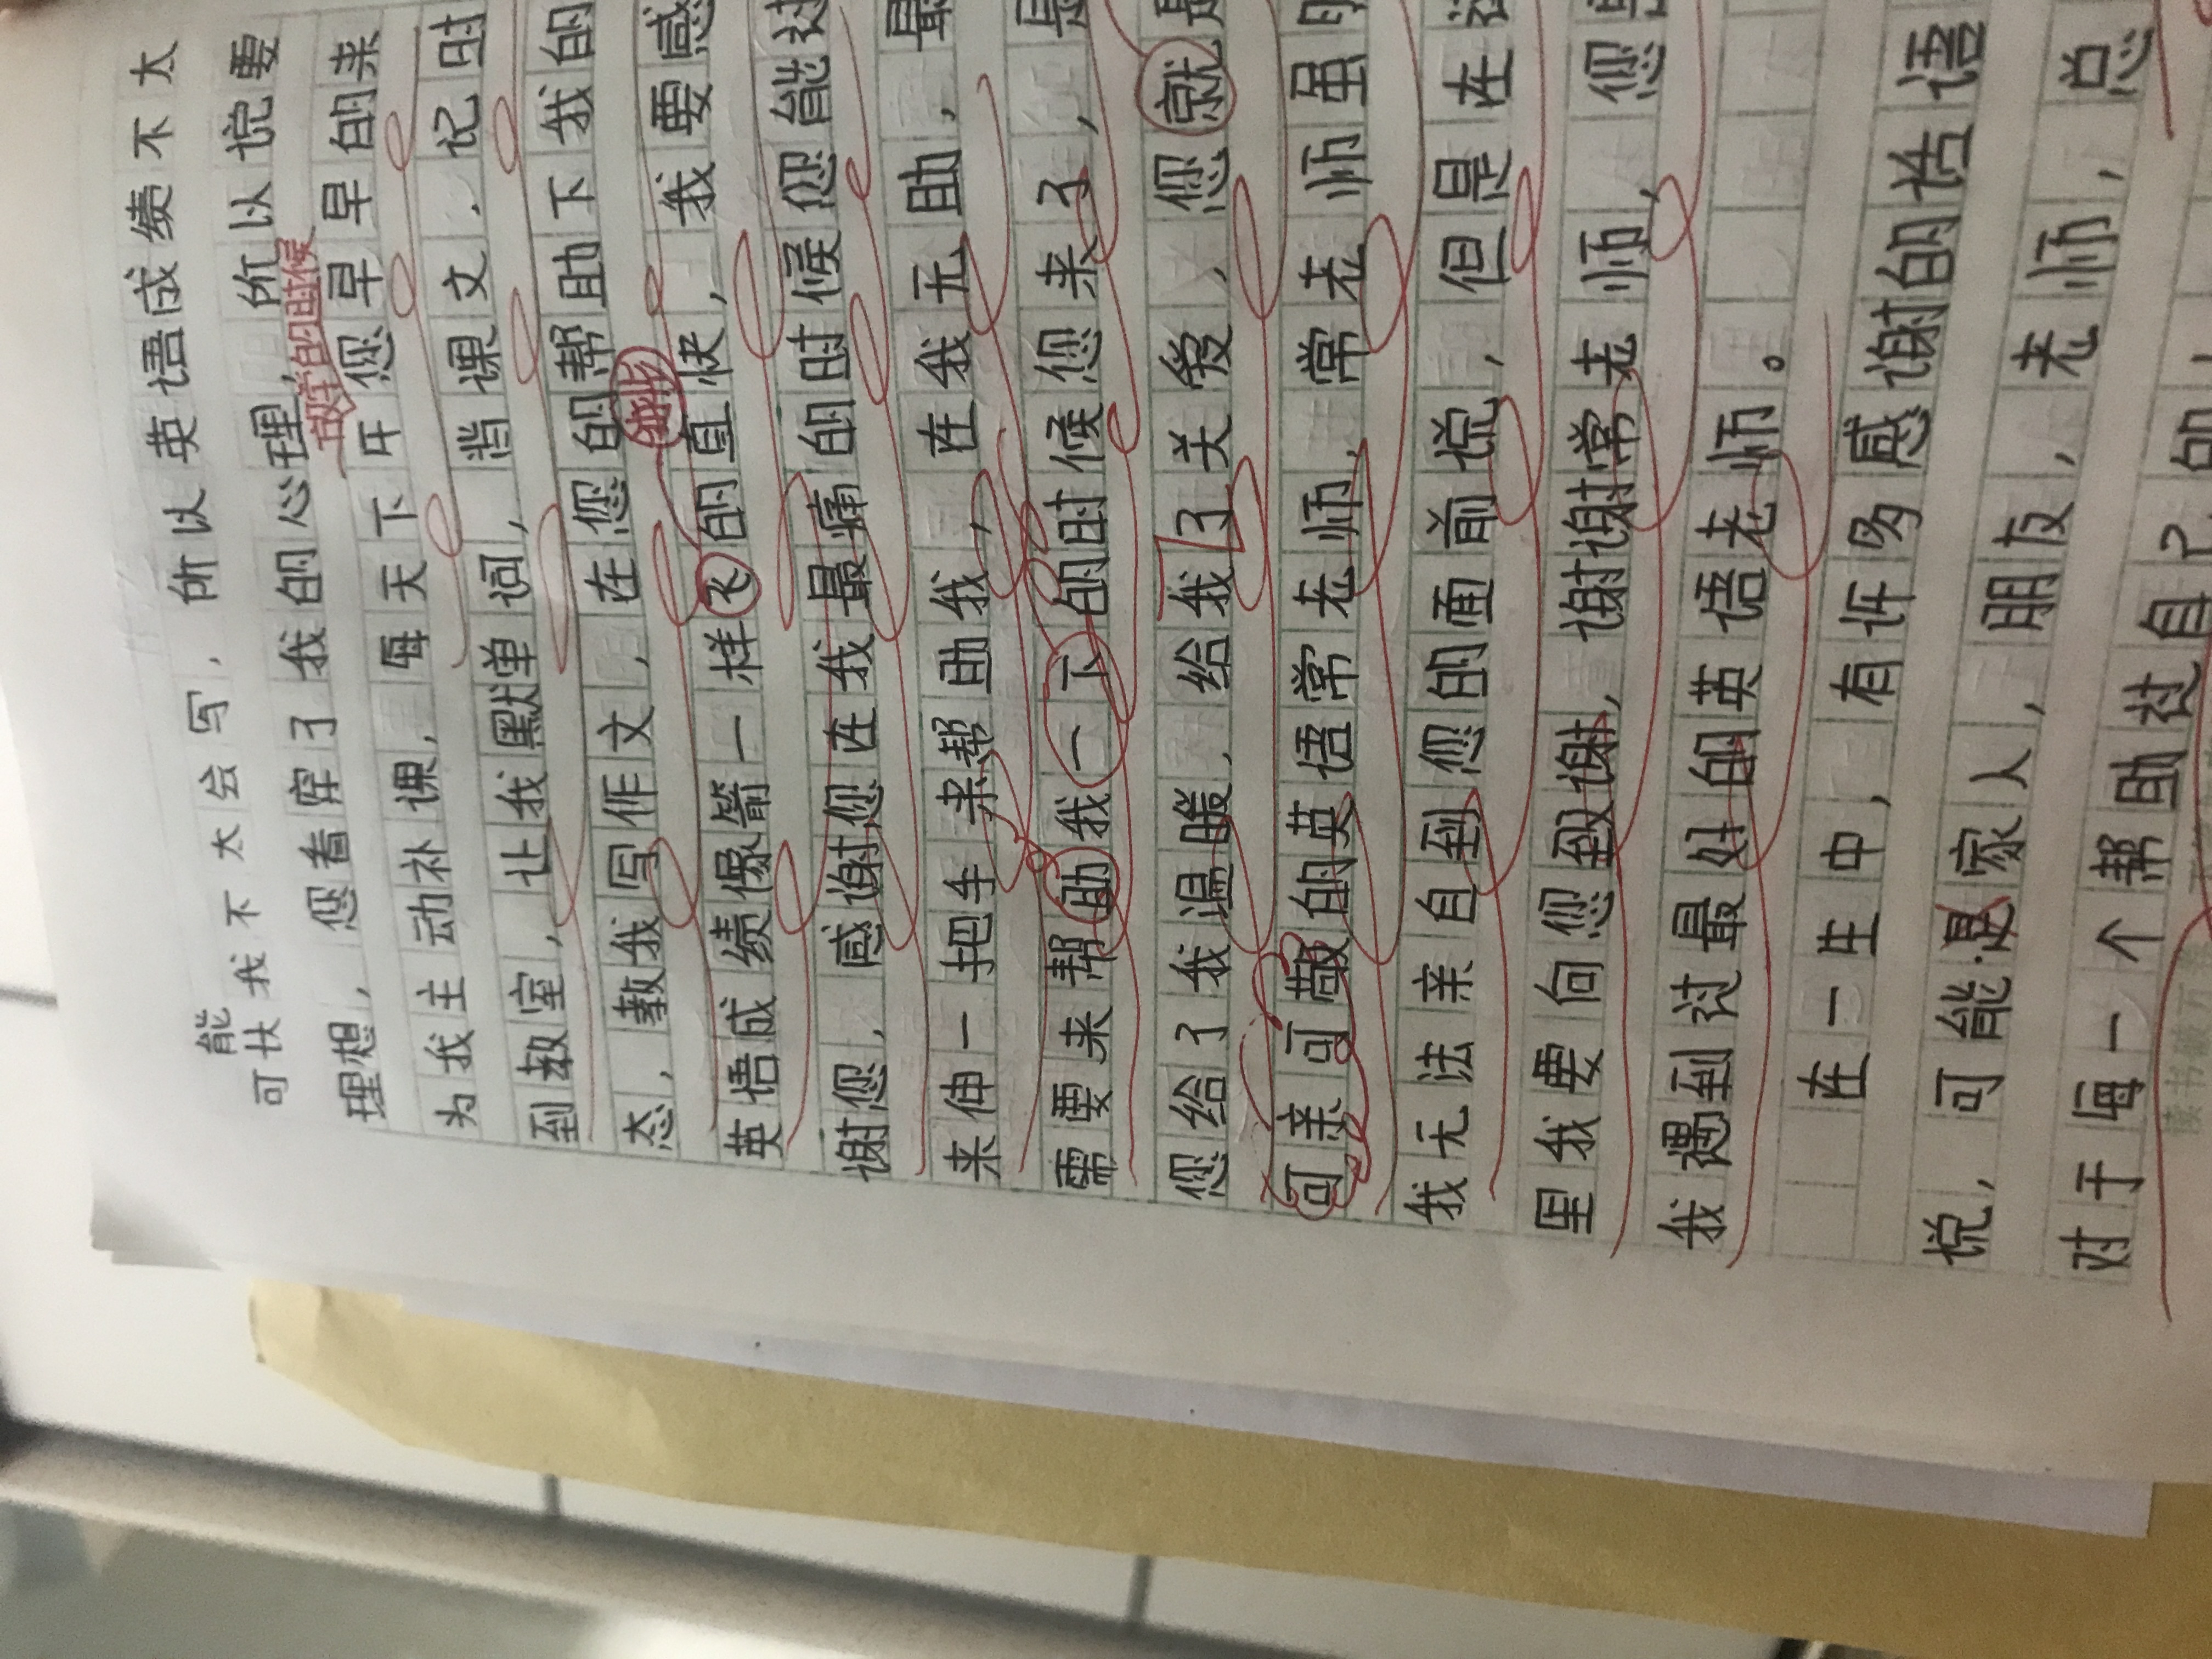 能
可扶我不太会写，所以英语成绩不太
理想，您看穿了我的心理，所以说要
放学的时候
为我主动补课，每天下午您早早的来
到教室，让我默单词，背课文，记时
态，教我写作文，在您的帮助下我的
英语成绩像箭一样飞的直快，我要感
谢您，感谢您在我最痛的时候您能过
来伸一把手来帮助我，在我无助，最
需要来帮助我一下的时候您来了，是
您给了我温暖，给我了关爱，您就是
可亲可敬的英语常老师，常老师虽
我无法亲自到您的面前说，但是在这
里我要向您致谢，谢谢常老师，您
我遇到过最好的英语老师。
在一生中，有许多感谢的话语
说，可能是家人，朋友，老师，总
对于每一个帮助过自